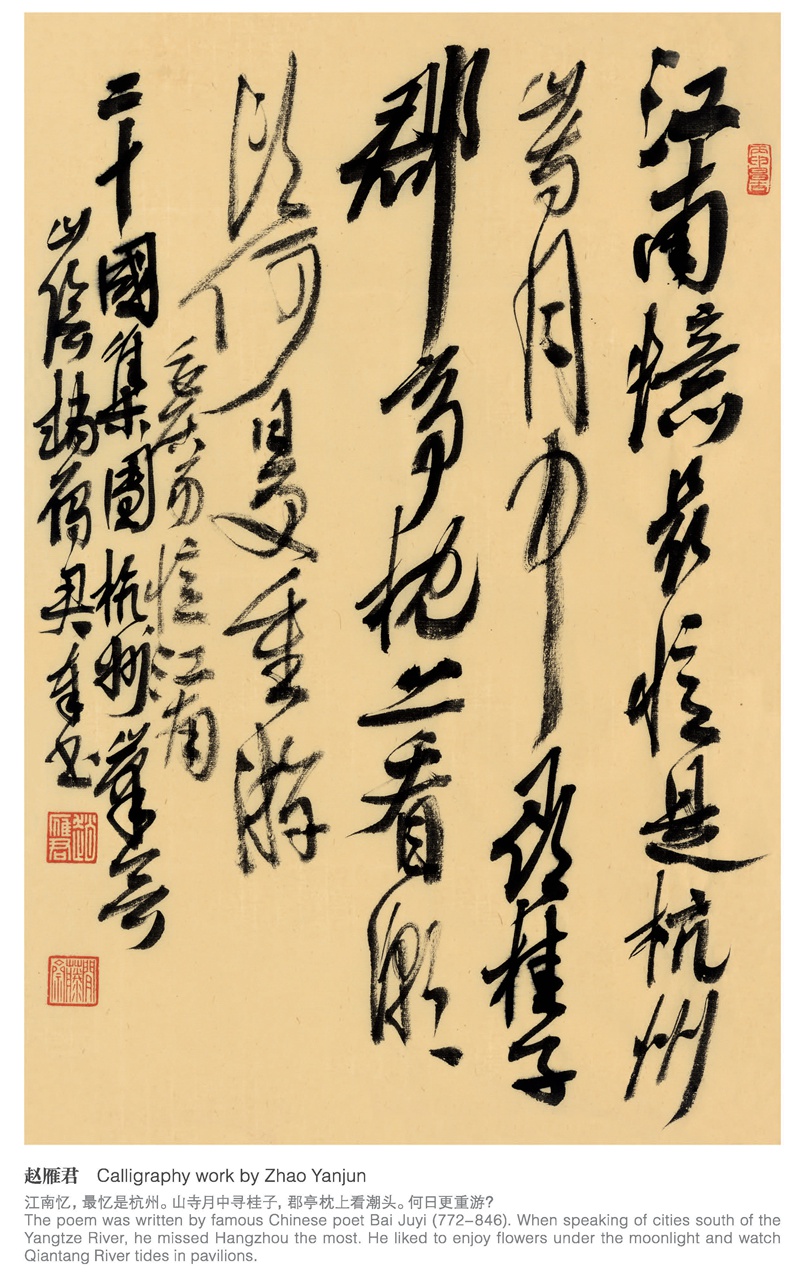 江南憶最憶是杭州
山寺月中尋桂子
郡亭枕上看潮
頭何日更重游
白居易憶江南
二十國集團杭州峯會
山陰趙雁君奉书
趙雁君
赵雁君 Calligraphy work by Zhao Yanjun
江南忆，最忆是杭州。山寺月中寻桂子，郡亭枕上看潮头。何日更重游？
The poem was written by famous Chinese poet Bai Juyi (772–846). When speaking of cities south of the
Yangtze River, he missed Hangzhou the most. He liked to enjoy flowers under the moonlight and watch
Qiantang River tides in pavilions.